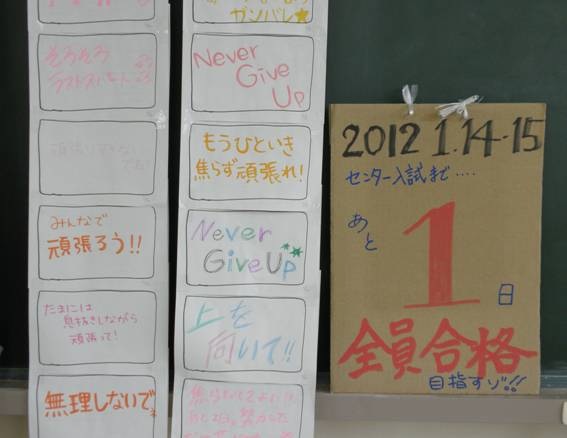 そろそろ
ラストスパート
みんなで
頑張ろう!!
たまには
息抜きしながら
頑張って!
無理しないで。
ガンバレ★
Never
Give
Up
もうひといき
焦らず頑張れ!
Never
Give Up
上を
向いて!!
2012 1.14-15
センター入試まで....
あと
1
日
全員合格
目指すゾ!!